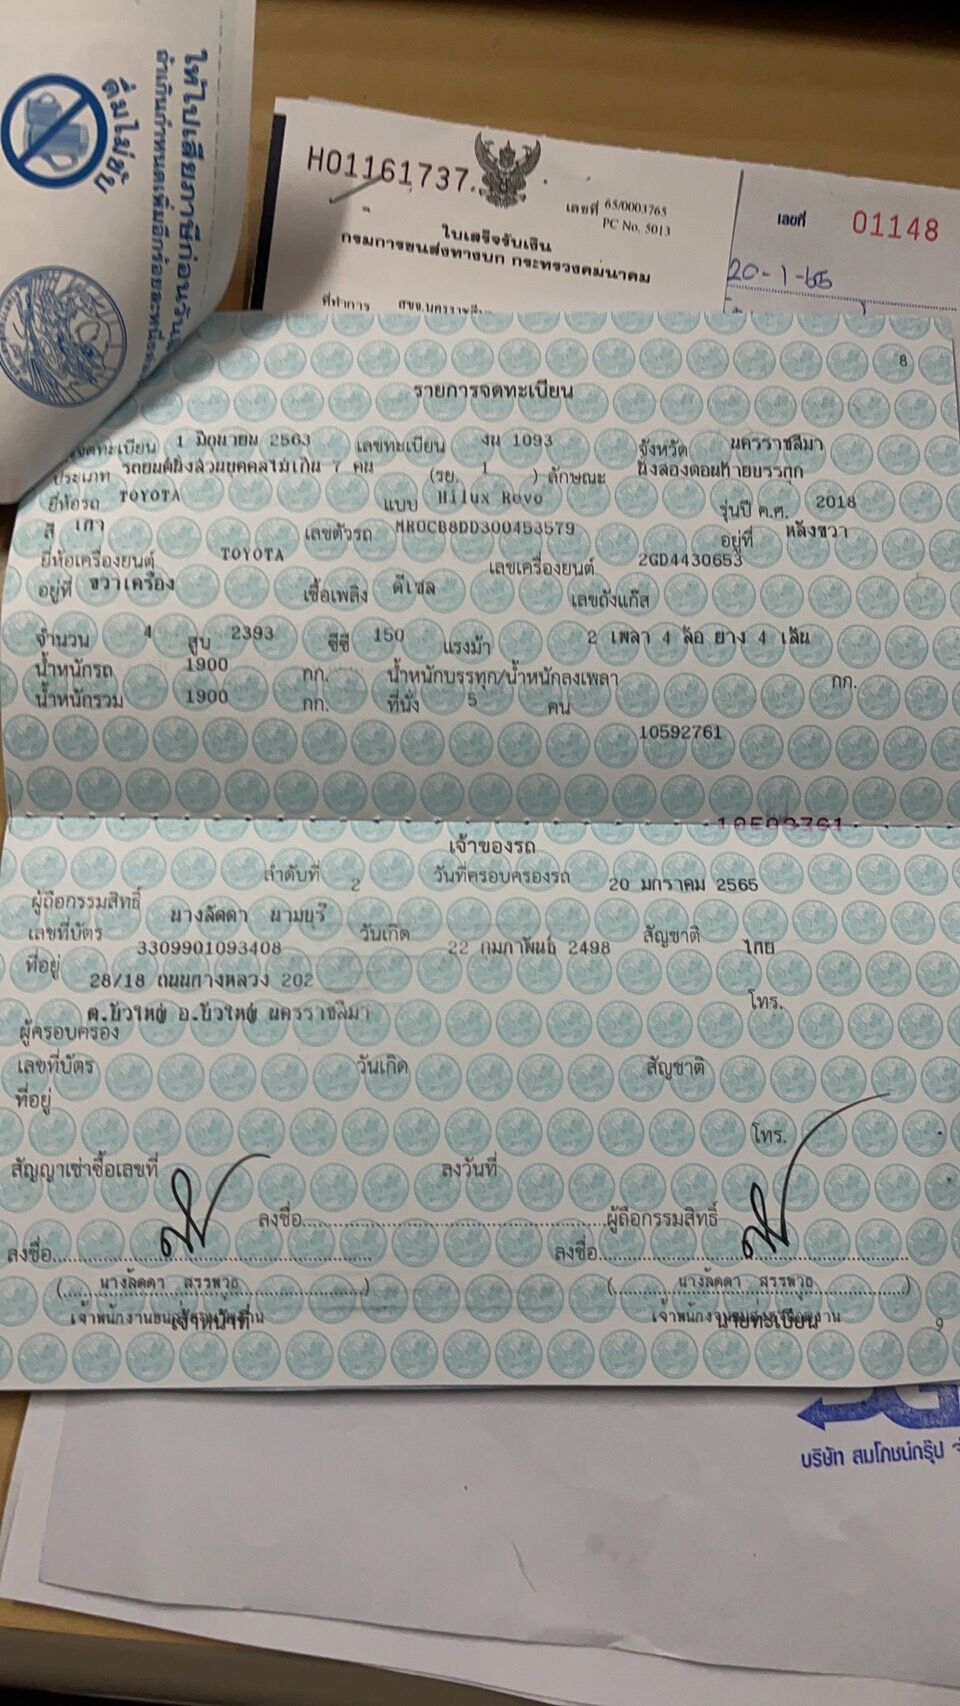 ให้ไปเสียภาษีก่อนวัน
ดื่มไม่ขับ
H01161737
เลขที่ 65/0003765
PC No. 5013
ใบเสร็จรับเงิน
กรมการขนส่งทางบก กระทรวงคมนาคม
ที่ทำการ สขจ.นครราชสีมา
เลขที่ 01148
20-1-65
8
รายการจดทะเบียน
จดทะเบียน 1 มิถุนายน 2563 เลขทะเบียน งน 1093 จังหวัด นครราชสีมา
ประเภท รถยนต์นั่งส่วนบุคคลไม่เกิน 7 คน (รย. 1 ) ลักษณะ นั่งสองตอนท้ายบรรทุก
ยี่ห้อรถ TOYOTA แบบ Hilux Revo รุ่นปี ค.ศ. 2018
สี เทา เลขตัวรถ MR0CB8DD300453579 อยู่ที่ หลังขวา
ยี่ห้อเครื่องยนต์ TOYOTA เลขเครื่องยนต์ 2GD4430653
อยู่ที่ ขวาเครื่อง เชื้อเพลิง ดีเซล เลขถังแก๊ส
จำนวน 4 สูบ 2393 ซีซี 150 แรงม้า 2 เพลา 4 ล้อ ยาง 4 เส้น
น้ำหนักรถ 1900 กก. น้ำหนักบรรทุก/น้ำหนักลงเพลา กก.
น้ำหนักรวม 1900 กก. ที่นั่ง 5 คน
10592761
10592761
เจ้าของรถ
ลำดับที่ 2 วันที่ครอบครองรถ 20 มกราคม 2565
ผู้ถือกรรมสิทธิ์ นางลัดดา นามบุรี
เลขที่บัตร 3309901093408 วันเกิด 22 กุมภาพันธ์ 2498 สัญชาติ ไทย
ที่อยู่ 28/18 ถนนทางหลวง 202
ต.บัวใหญ่ อ.บัวใหญ่ นครราชสีมา โทร.
ผู้ครอบครอง
เลขที่บัตร วันเกิด สัญชาติ
ที่อยู่
โทร.
สัญญาเช่าซื้อเลขที่ ลงวันที่
ลงชื่อ ผู้ถือกรรมสิทธิ์
ลงชื่อ ลงชื่อ
( นางลัดดา สรรพวุธ ) ( นางลัดดา สรรพวุธ )
เจ้าหน้าที่ นายทะเบียน
9
บริษัท สมโภชน์กรุ๊ป